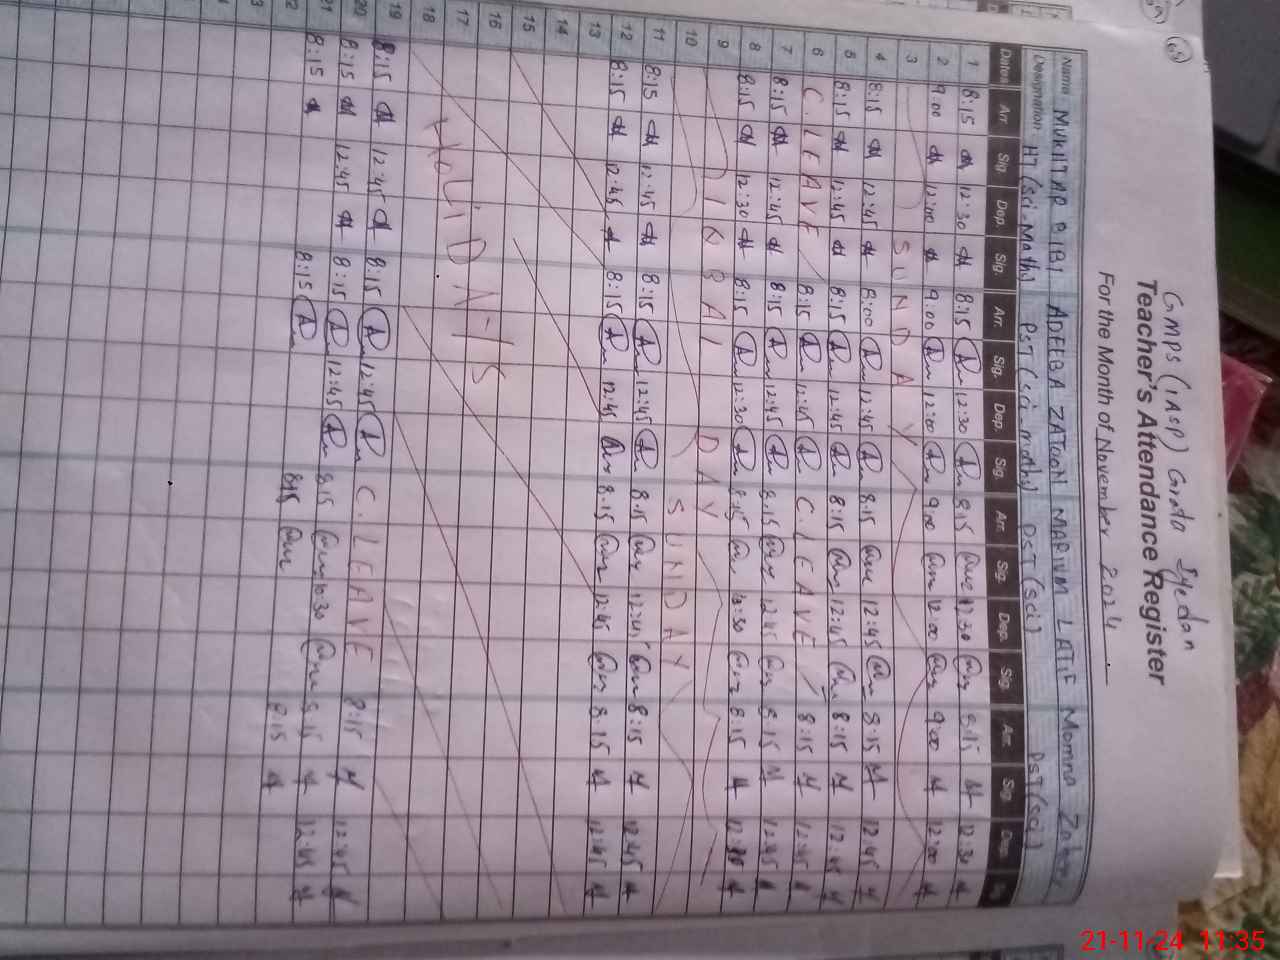 65
GMPS (IASP) Grata Syedan
Teacher's Attendance Register
For the Month of November 2024
Name MUKHTAR BIBI ADEEBA ZATOON MARIUM LATIF Momna Zaheer
Designation HT (sci-Maths) PST (sci maths) PST (sci) PST (sci)
Dates Arr. Sig. Dep. Sig. Arr. Sig. Dep. Sig. Arr. Sig. Dep. Sig. Arr. Sig. Dep. Sig.
1 8:15 12:30 8:15 12:30 8:15 12:30 8:15 12:30
2 9:00 12:00 9:00 12:00 9:00 12:00 9:00 12:00
3 SUNDAY
4 8:15 12:45 8:00 12:45 8:15 12:45 8:15 12:45
5 8:15 12:45 8:15 12:45 8:15 12:45 8:15 12:45
6 C. LEAVE 8:15 12:45 C. LEAVE 8:15 12:45
7 8:15 12:45 8:15 12:45 8:15 12:45 8:15 12:45
8 8:15 12:30 8:15 12:30 8:15 12:30 8:15
9 IQBAL DAY
10 SUNDAY
11 8:15 12:45 8:15 12:45 8:15 12:45 8:15 12:45
12 8:15 12:45 8:15 12:45 8:15 12:45 8:15 12:45
13
14
15
16
17
18 HOLIDAYS
19 8:15 12:45 8:15 12:45 C. LEAVE 8:15 12:45
20 8:15 12:45 8:15 12:45 8:15 10:30 8:15 12:45
21 8:15 8:15 8:15 8:15
22
21-11-24 11:35